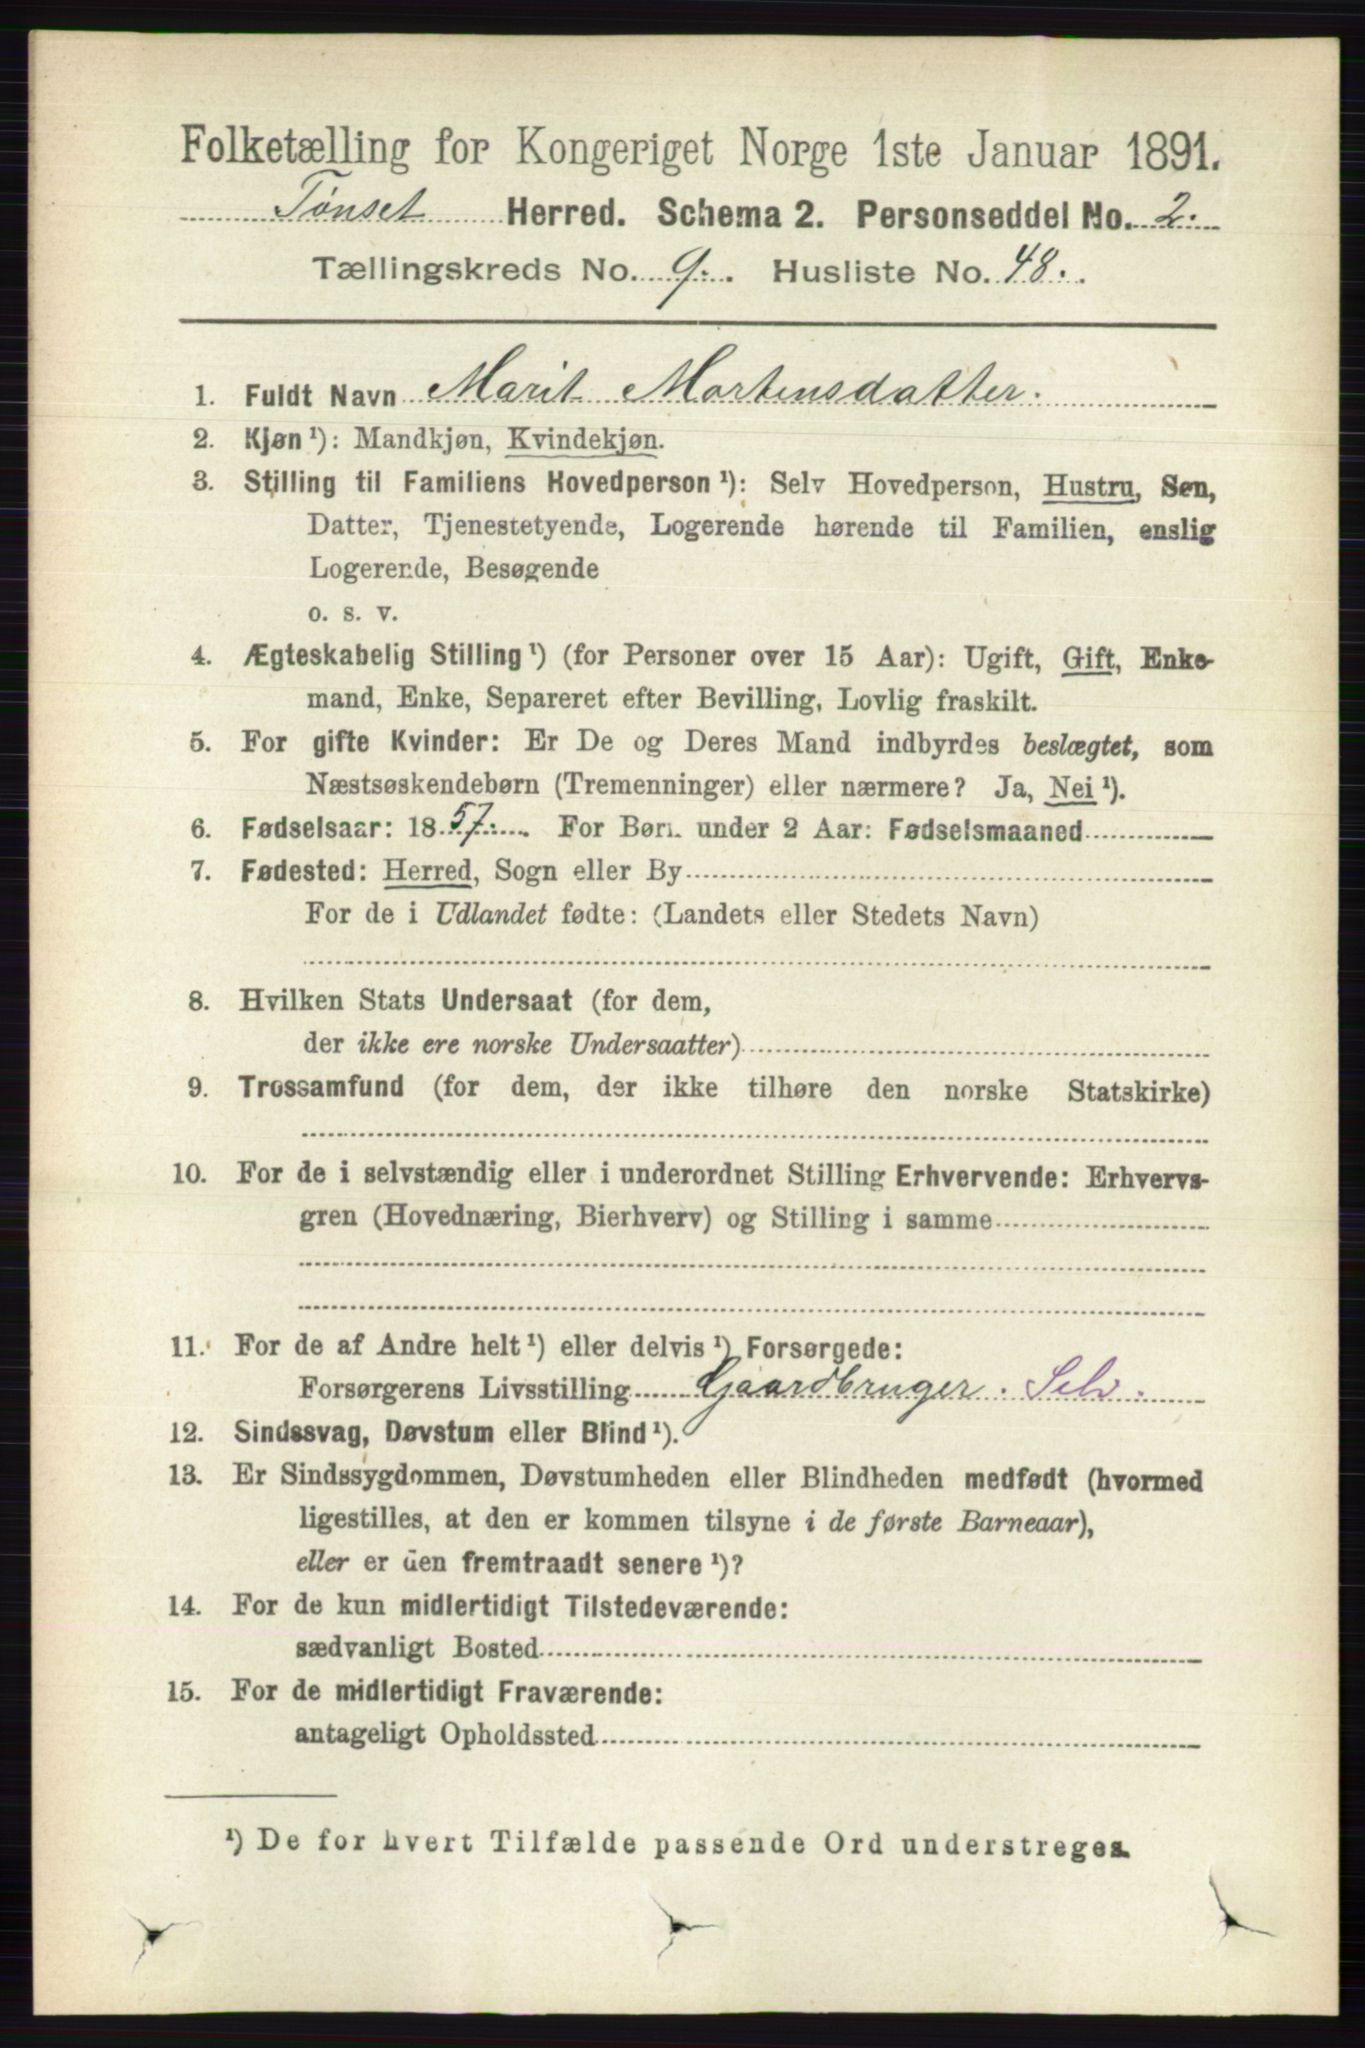 Folketælling for Kongeriget Norge 1ste Januar 1891.
Tønset Herred. Schema 2. Personseddel No. 2.
Tællingskreds No. 9. Husliste No. 48.
1. Fuldt Navn Marit Mortensdatter.
2. Kjøn¹): Mandkjøn, Kvindekjøn.
3. Stilling til Familiens Hovedperson¹): Selv Hovedperson, Hustru, Søn,
Datter, Tjenestetyende, Logerende hørende til Familien, enslig
Logerende, Besøgende
o. s. v.
4. Ægteskabelig Stilling¹) (for Personer over 15 Aar): Ugift, Gift, Enke-
mand, Enke, Separeret efter Bevilling, Lovlig fraskilt.
5. For gifte Kvinder: Er De og Deres Mand indbyrdes beslægtet, som
Næstsøskendebørn (Tremenninger) eller nærmere? Ja, Nei¹).
6. Fødselsaar: 1857. For Børn under 2 Aar: Fødselsmaaned
7. Fødested: Herred, Sogn eller By
For de i Udlandet fødte: (Landets eller Stedets Navn)
8. Hvilken Stats Undersaat (for dem,
der ikke ere norske Undersaatter)
9. Trossamfund (for dem, der ikke tilhøre den norske Statskirke)
10. For de i selvstændig eller i underordnet Stilling Erhvervende: Erhvervs-
gren (Hovednæring, Bierhverv) og Stilling i samme
11. For de af Andre helt¹) eller delvis¹) Forsørgede:
Forsørgerens Livsstilling Gaardbruger. Selv.
12. Sindssvag, Døvstum eller Blind¹).
13. Er Sindssygdommen, Døvstumheden eller Blindheden medfødt (hvormed
ligestilles, at den er kommen tilsyne i de første Barneaar),
eller er den fremtraadt senere¹)?
14. For de kun midlertidigt Tilstedeværende:
sædvanligt Bosted
15. For de midlertidigt Fraværende:
antageligt Opholdssted
¹) De for hvert Tilfælde passende Ord understreges.